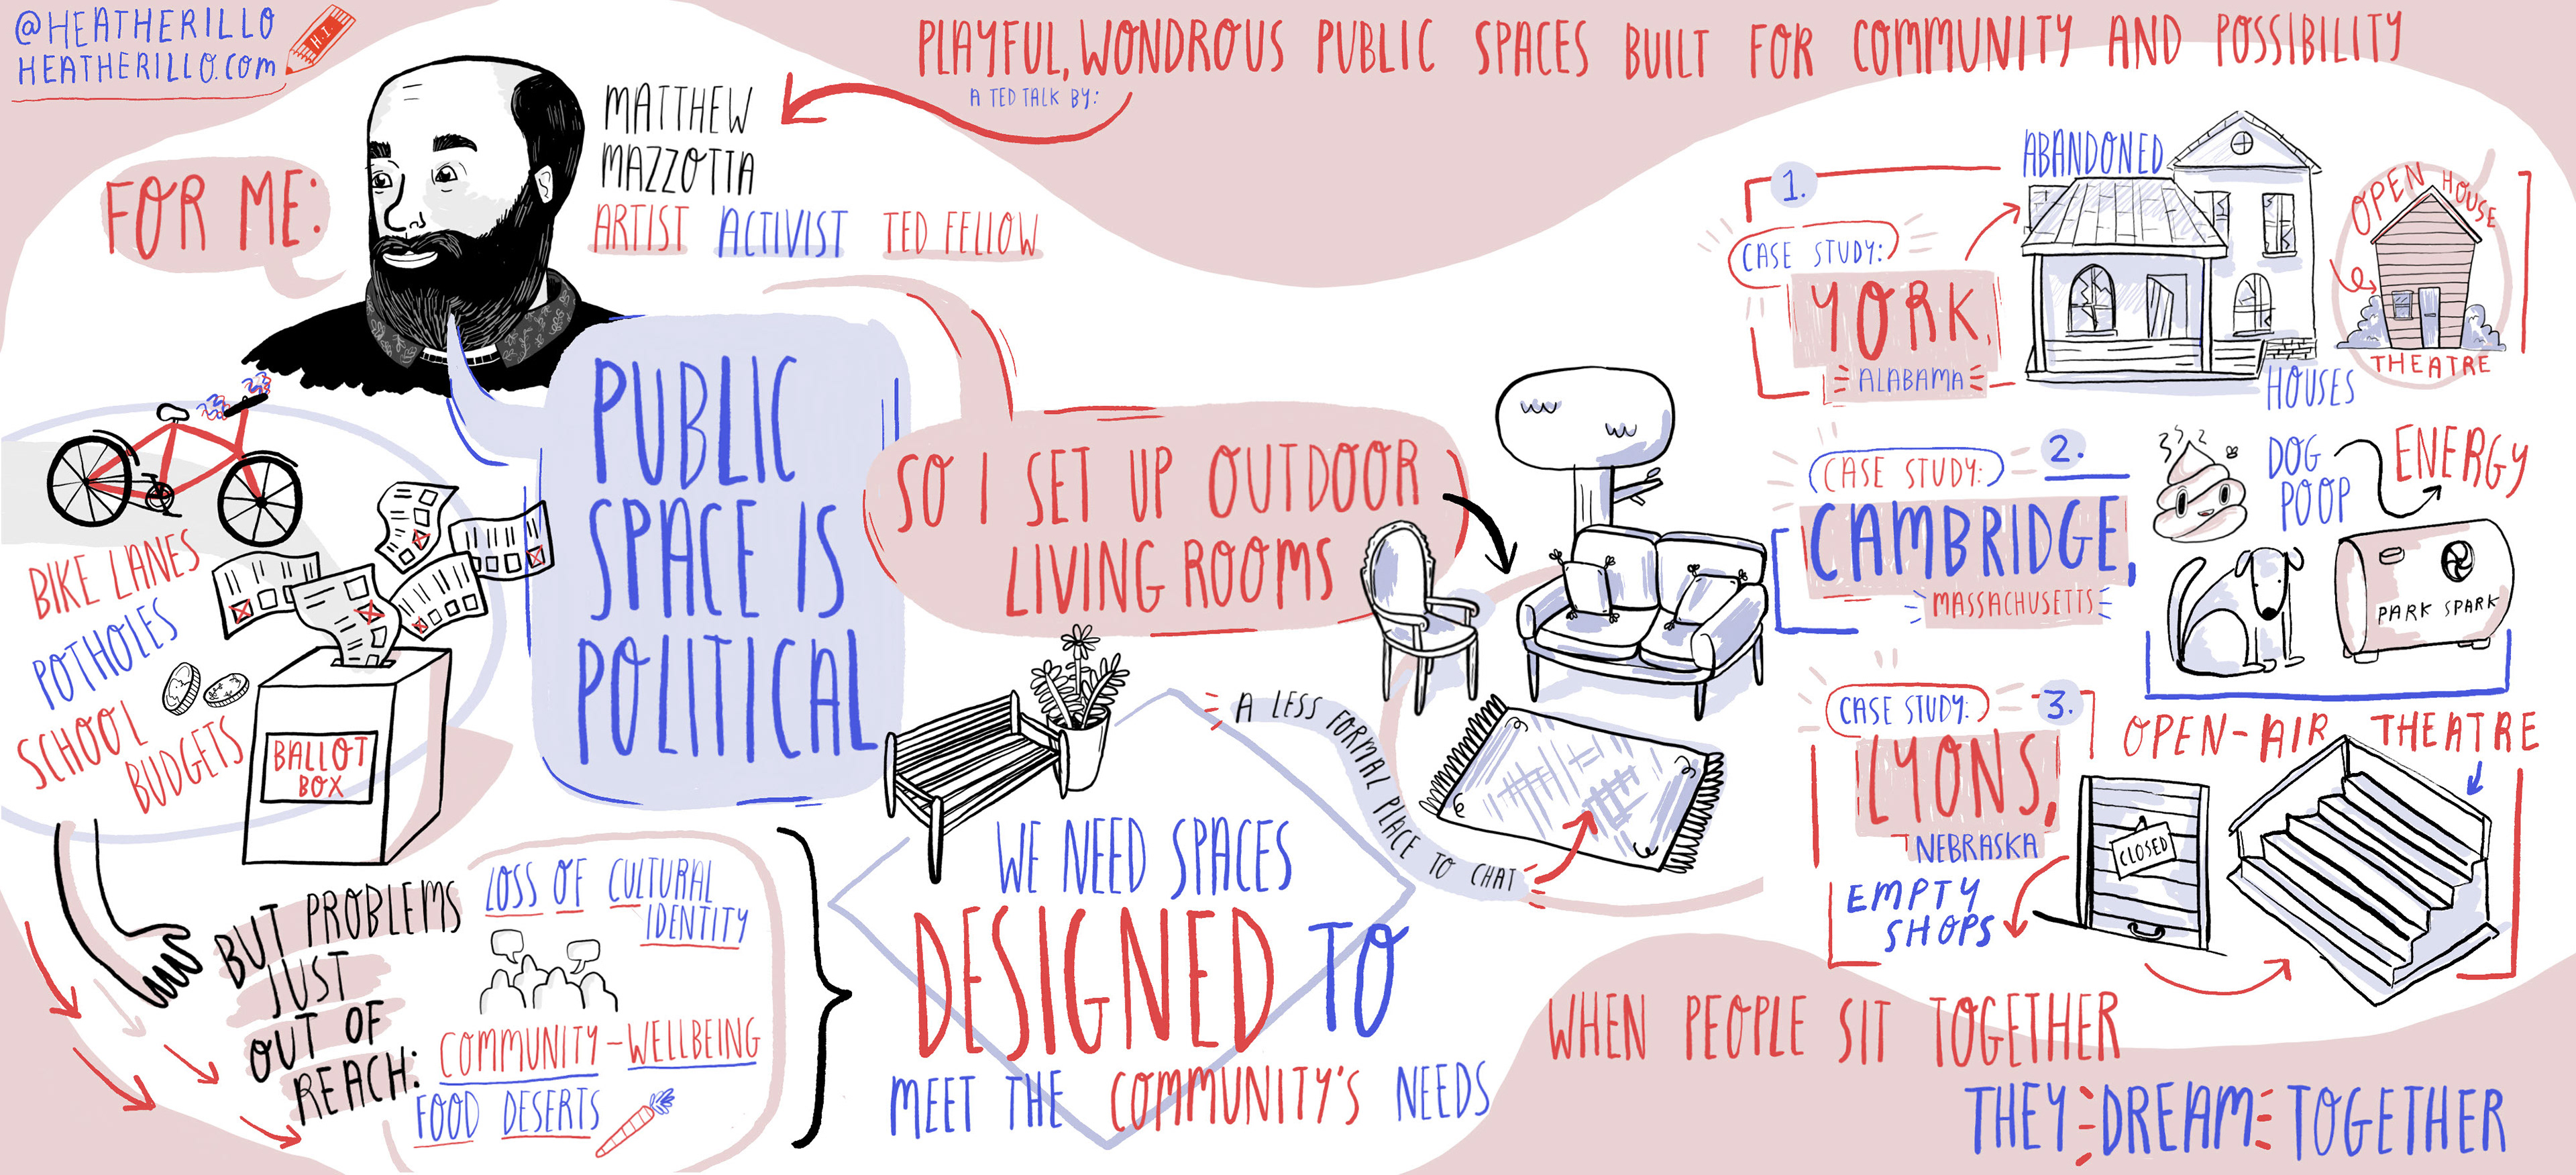 @HEATHERILLO
HEATHERILLO.COM
H.I.
PLAYFUL, WONDROUS PUBLIC SPACES BUILT FOR COMMUNITY AND POSSIBILITY
A TED TALK BY:
MATTHEW
MAZZOTTA
ARTIST ACTIVIST TED FELLOW
FOR ME:
PUBLIC
SPACE IS
POLITICAL
BIKE LANES
POTHOLES
SCHOOL
BUDGETS
BALLOT
BOX
BUT PROBLEMS
JUST
OUT OF
REACH:
LOSS OF CULTURAL
IDENTITY
COMMUNITY-WELLBEING
FOOD DESERTS
SO I SET UP OUTDOOR
LIVING ROOMS
A LESS FORMAL PLACE TO CHAT
WE NEED SPACES
DESIGNED TO
MEET THE COMMUNITY'S NEEDS
1.
CASE STUDY:
YORK,
ALABAMA
ABANDONED
HOUSES
OPEN HOUSE
THEATRE
CASE STUDY: 2.
CAMBRIDGE,
MASSACHUSETTS
DOG
POOP
ENERGY
PARK SPARK
CASE STUDY: 3.
LYONS,
NEBRASKA
EMPTY
SHOPS
CLOSED
OPEN-AIR THEATRE
WHEN PEOPLE SIT TOGETHER
THEY DREAM TOGETHER